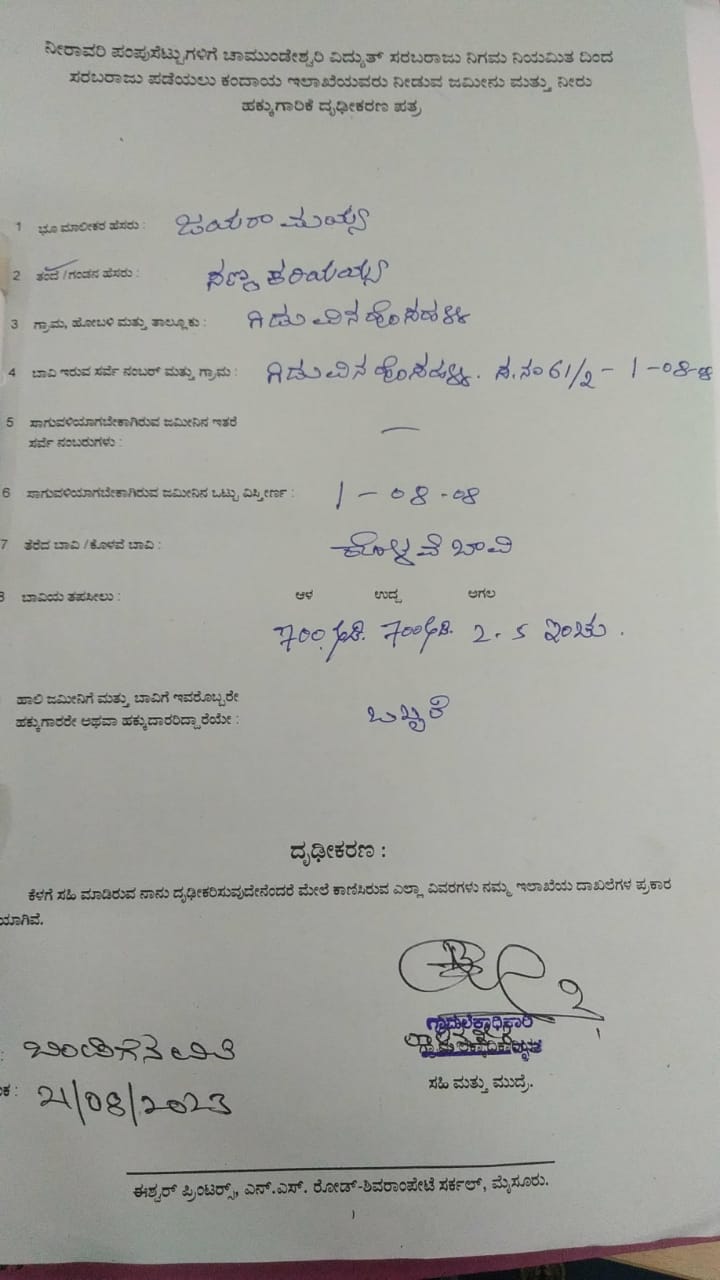 ನೀರಾವರಿ ಪಂಪುಸೆಟ್ಟುಗಳಿಗೆ ಚಾಮುಂಡೇಶ್ವರಿ ವಿದ್ಯುತ್ ಸರಬರಾಜು ನಿಗಮ ನಿಯಮಿತ ದಿಂದ
ಸರಬರಾಜು ಪಡೆಯಲು ಕಂದಾಯ ಇಲಾಖೆಯವರು ನೀಡುವ ಜಮೀನು ಮತ್ತು ನೀರು
ಹಕ್ಕುಗಾರಿಕೆ ದೃಢೀಕರಣ ಪತ್ರ
1 ಭೂ ಮಾಲೀಕರ ಹೆಸರು : ಜಯರಾಮಯ್ಯ
2 ತಂದೆ/ಗಂಡನ ಹೆಸರು : ಸಣ್ಣ ಕರಿಯಯ್ಯ
3 ಗ್ರಾಮ, ಹೋಬಳಿ ಮತ್ತು ತಾಲ್ಲೂಕು : ಗಿಡುವಿನ ಹೊಸಹಳ್ಳಿ
4 ಬಾವಿ ಇರುವ ಸರ್ವೆ ನಂಬರ್ ಮತ್ತು ಗ್ರಾಮ : ಗಿಡುವಿನ ಹೊಸಹಳ್ಳಿ. ಸ.ನಂ 61/2 - 1-08-08
5 ಸಾಗುವಳಿಯಾಗಬೇಕಾಗಿರುವ ಜಮೀನಿನ ಇತರೆ
ಸರ್ವೆ ನಂಬರುಗಳು : —
6 ಸಾಗುವಳಿಯಾಗಬೇಕಾಗಿರುವ ಜಮೀನಿನ ಒಟ್ಟು ವಿಸ್ತೀರ್ಣ : 1-08-08
7 ತೆರೆದ ಬಾವಿ/ಕೊಳವೆ ಬಾವಿ : ಕೊಳ್ಳವೆ ಬಾವಿ
8 ಬಾವಿಯ ತಪಸೀಲು : ಆಳ ಉದ್ದ ಅಗಲ
700 ಅಡಿ. 700 ಅಡಿ. 2.5 ಇಂಚು.
ಹಾಲಿ ಜಮೀನಿಗೆ ಮತ್ತು ಬಾವಿಗೆ ಇವರೊಬ್ಬರೇ
ಹಕ್ಕುಗಾರರೇ ಅಥವಾ ಹಕ್ಕುದಾರರಿದ್ದಾರೆಯೇ : ಒಬ್ಬರೆ
ದೃಢೀಕರಣ :
ಕೆಳಗೆ ಸಹಿ ಮಾಡಿರುವ ನಾನು ದೃಢೀಕರಿಸುವುದೇನೆಂದರೆ ಮೇಲೆ ಕಾಣಿಸಿರುವ ಎಲ್ಲಾ ವಿವರಗಳು ನಮ್ಮ ಇಲಾಖೆಯ ದಾಖಲೆಗಳ ಪ್ರಕಾರ
ಯಾಗಿವೆ.
ಗ್ರಾಮಲೆಕ್ಕಾಧಿಕಾರಿ
: ಬಿಂಡಿಗೆನವಿಲೆ
ಸಹಿ ಮತ್ತು ಮುದ್ರೆ.
ಕ : 21/08/2023
ಈಶ್ವರ್ ಪ್ರಿಂಟರ್ಸ್, ಎನ್.ಎಸ್. ರೋಡ್-ಶಿವರಾಂಪೇಟೆ ಸರ್ಕಲ್, ಮೈಸೂರು.